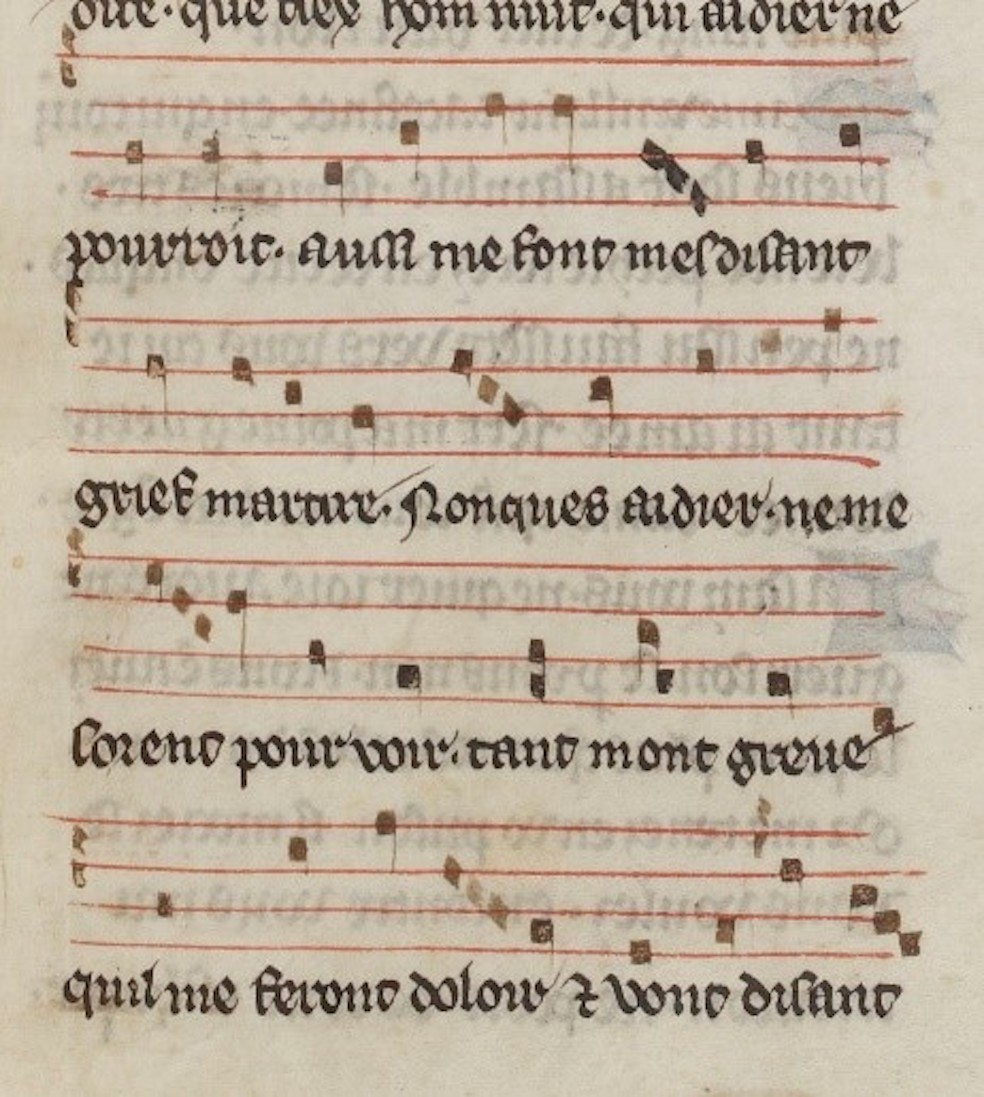 dire · que biex hom muir · qui aidier ne
pourroit · aussi me font mesdisant
grief martire · Nonques aidier · ne me
sorent pour voir · tant mont greue
quil me feront doloir ⁊ vont disant